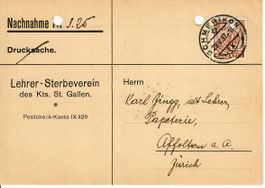 Nachnahme Fr. 3.25
Drucksache.
SCHMERIKON
Lehrer-Sterbeverein
des Kts. St. Gallen.
Postcheck-Konto IX 429
Herrn
Karl Zingg, alt Lehrer,
Papeterie,
Affoltern a. A.
Zürich